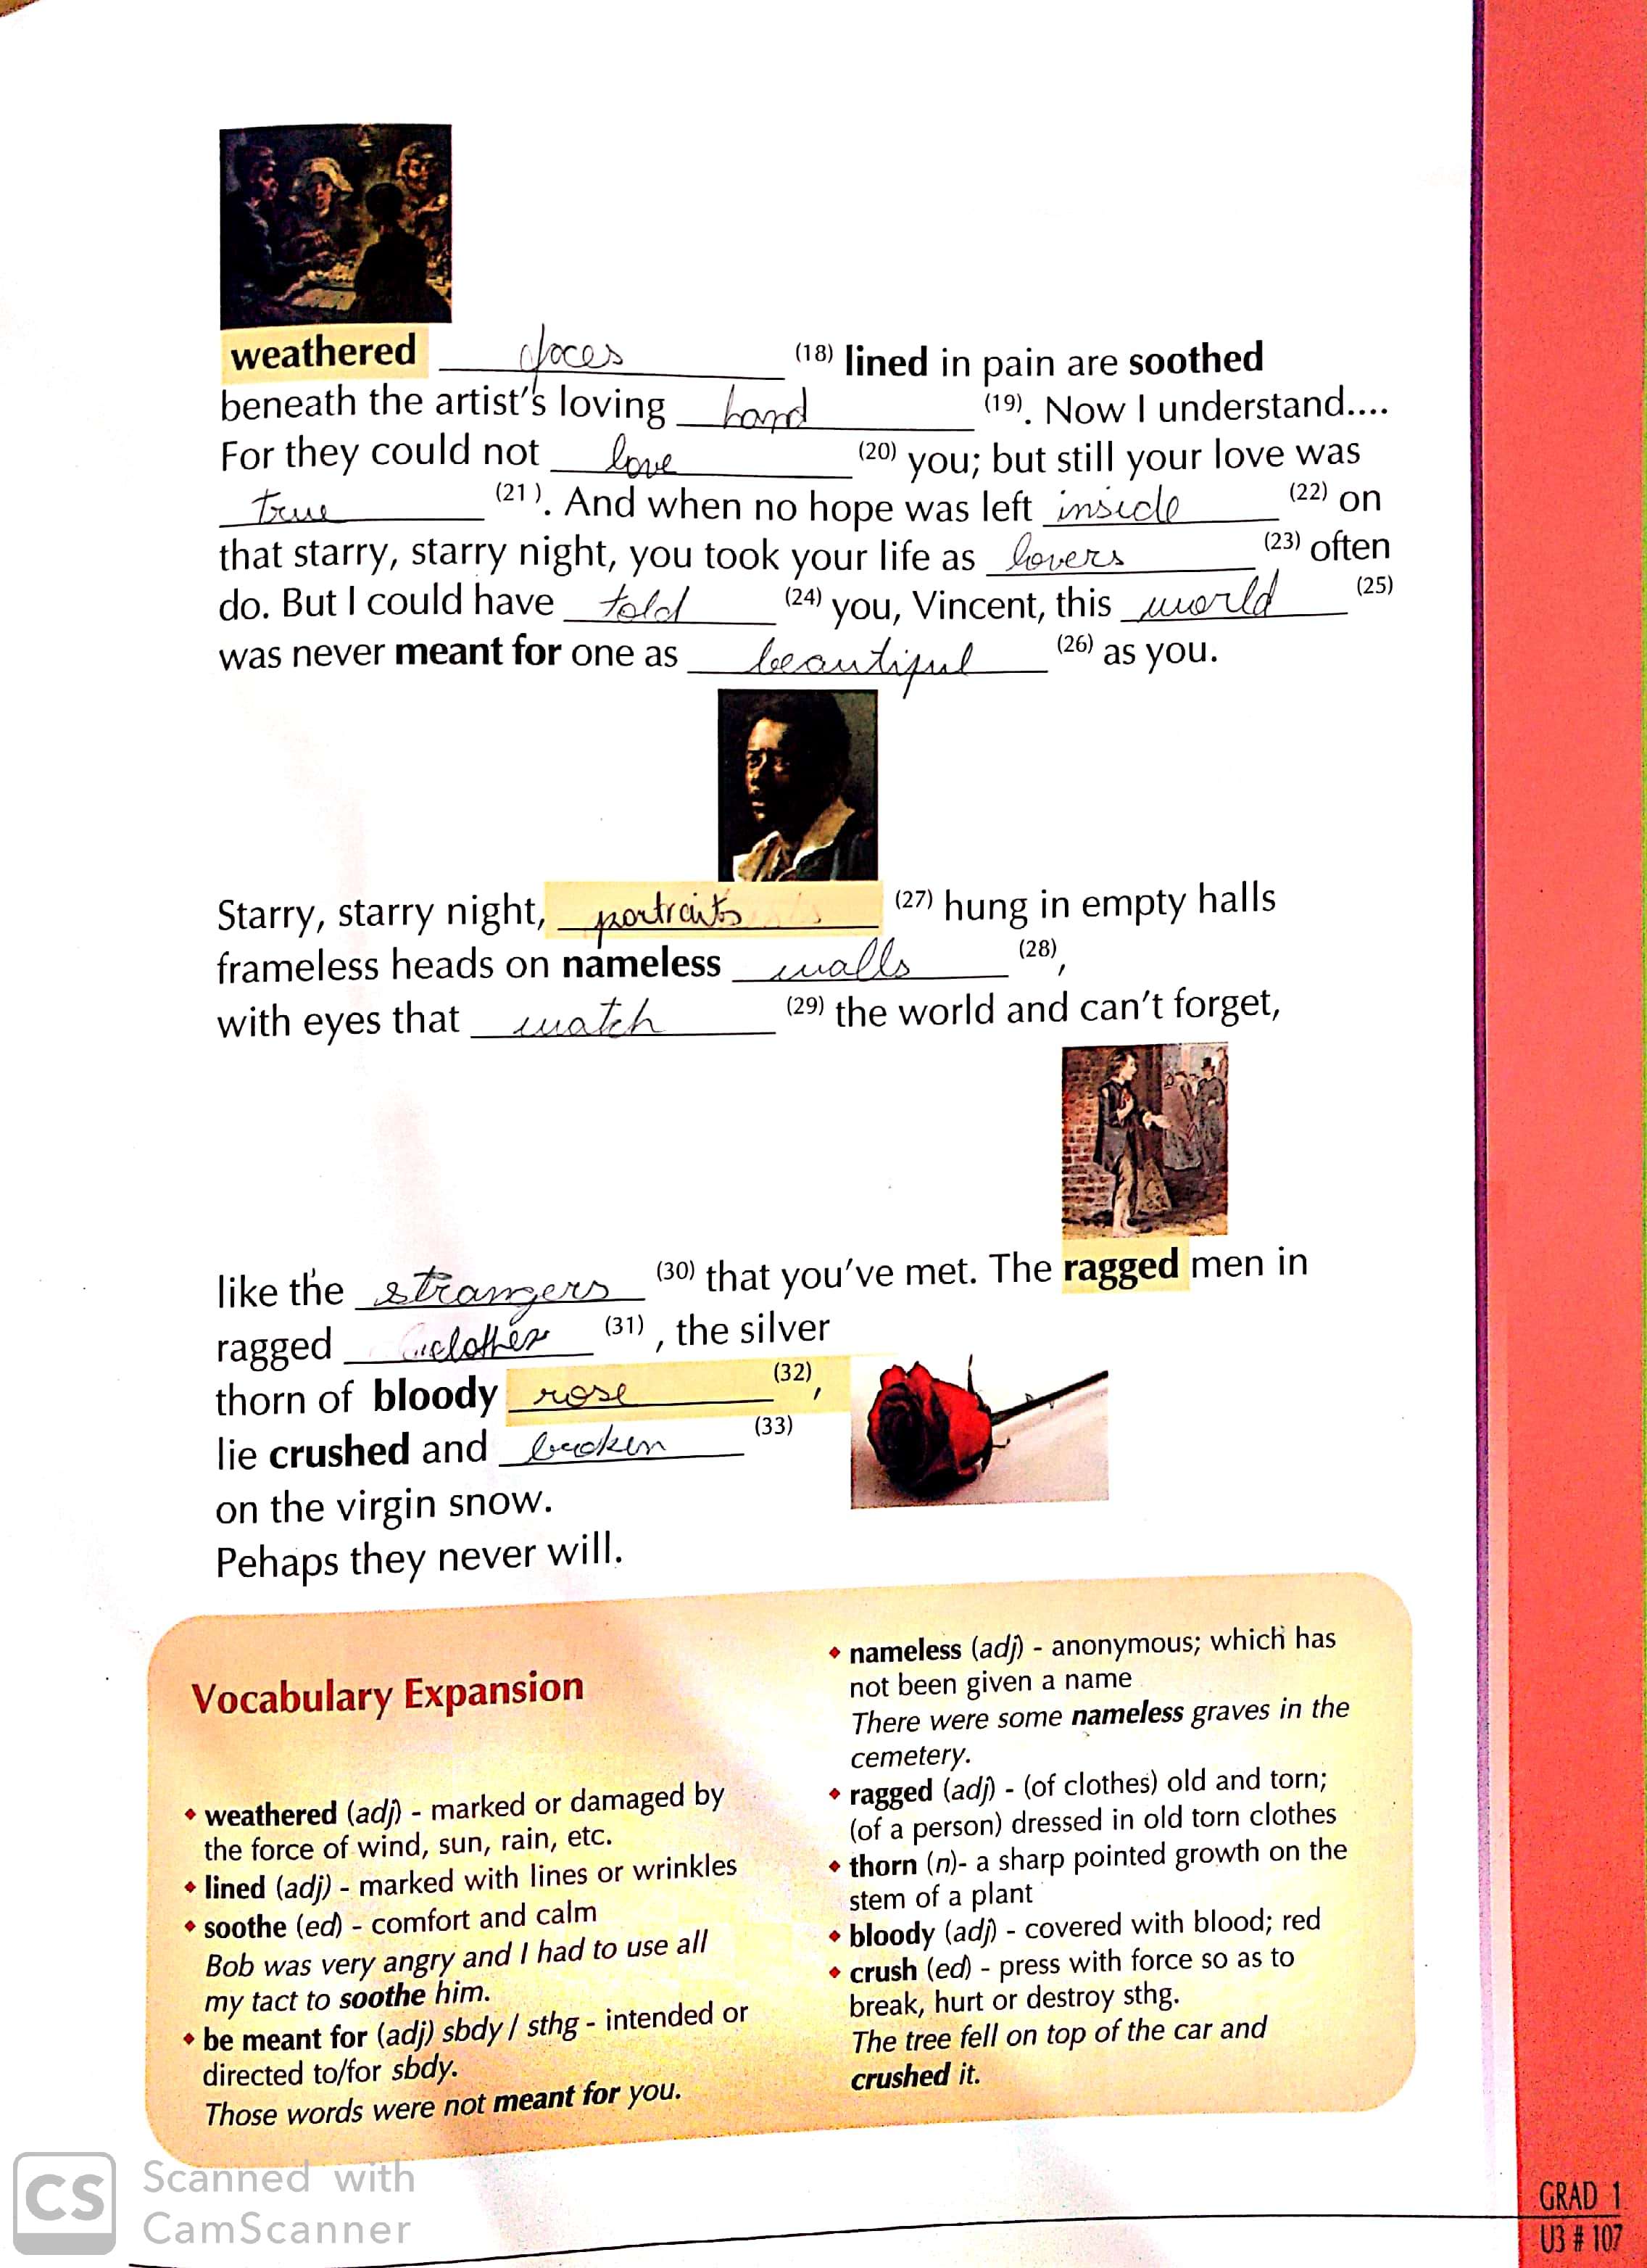 weathered faces (18) lined in pain are soothed
beneath the artist's loving hand (19). Now I understand....
For they could not love (20) you; but still your love was
true (21 ). And when no hope was left inside (22) on
that starry, starry night, you took your life as lovers (23) often
do. But I could have told (24) you, Vincent, this world (25)
was never meant for one as beautiful (26) as you.
Starry, starry night, portraits (27) hung in empty halls
frameless heads on nameless walls (28),
with eyes that watch (29) the world and can't forget,
like the strangers (30) that you've met. The ragged men in
ragged clothes (31) , the silver
thorn of bloody rose (32),
lie crushed and broken (33)
on the virgin snow.
Pehaps they never will.
Vocabulary Expansion
• weathered (adj) - marked or damaged by
the force of wind, sun, rain, etc.
• lined (adj) - marked with lines or wrinkles
• soothe (ed) - comfort and calm
Bob was very angry and I had to use all
my tact to soothe him.
• be meant for (adj) sbdy / sthg - intended or
directed to/for sbdy.
Those words were not meant for you.
• nameless (adj) - anonymous; which has
not been given a name
There were some nameless graves in the
cemetery.
• ragged (adj) - (of clothes) old and torn;
(of a person) dressed in old torn clothes
• thorn (n)- a sharp pointed growth on the
stem of a plant
• bloody (adj) - covered with blood; red
• crush (ed) - press with force so as to
break, hurt or destroy sthg.
The tree fell on top of the car and
crushed it.
CS Scanned with
CamScanner
GRAD 1
U3 # 107